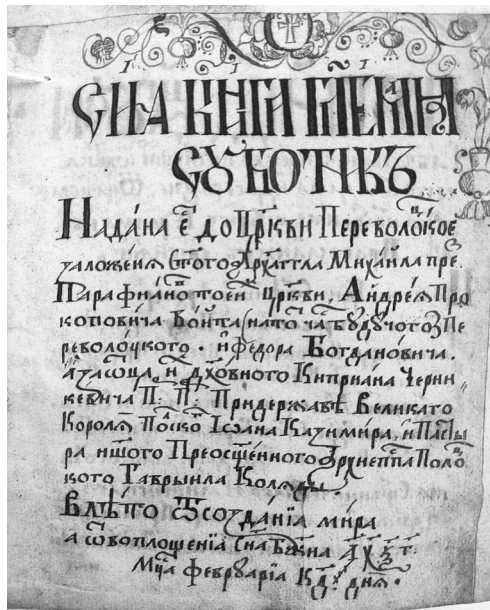 СИꙖ КНИГА ГЛ҃ЕМАꙖ
СѸБОТНИКЪ
Надана є҃ до Цр҃кви Переволоⷰкое
заложеня Ст҃ого Арха҃ггла Михаила преⷥ
Парафианоⷡ тоеи цр҃кви, Андреѧ Про
коповича Воита на тоⷮ чаⷭ будучого З Пе
револоцкого. и Федора Богдановича.
а за ѿца, и дх҃овного Киприана Черни
кевича П: П: При державѣ Великаго
Королѧ Поⷧско Іѡана Казимира, и Пасты
ра нш҃ого Преосщ҃енного Архиепⷭпа Полоⷰ
кого Гаврыила Коляды
В лѣто ѿ созданїа мира
а ѿ воплощенїа Сн҃а Бж҃иꙗ
Мц҃а Февруарїа КД҃ днѧ.